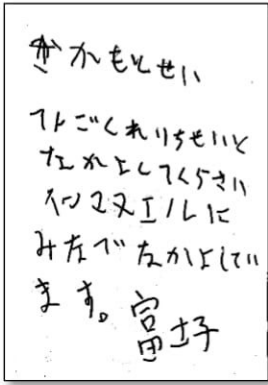 きかもとせい
てんごくれりちせいと
なかよしてくらさい
インマヌエルに
みなでなかよしてい
ます。富士子